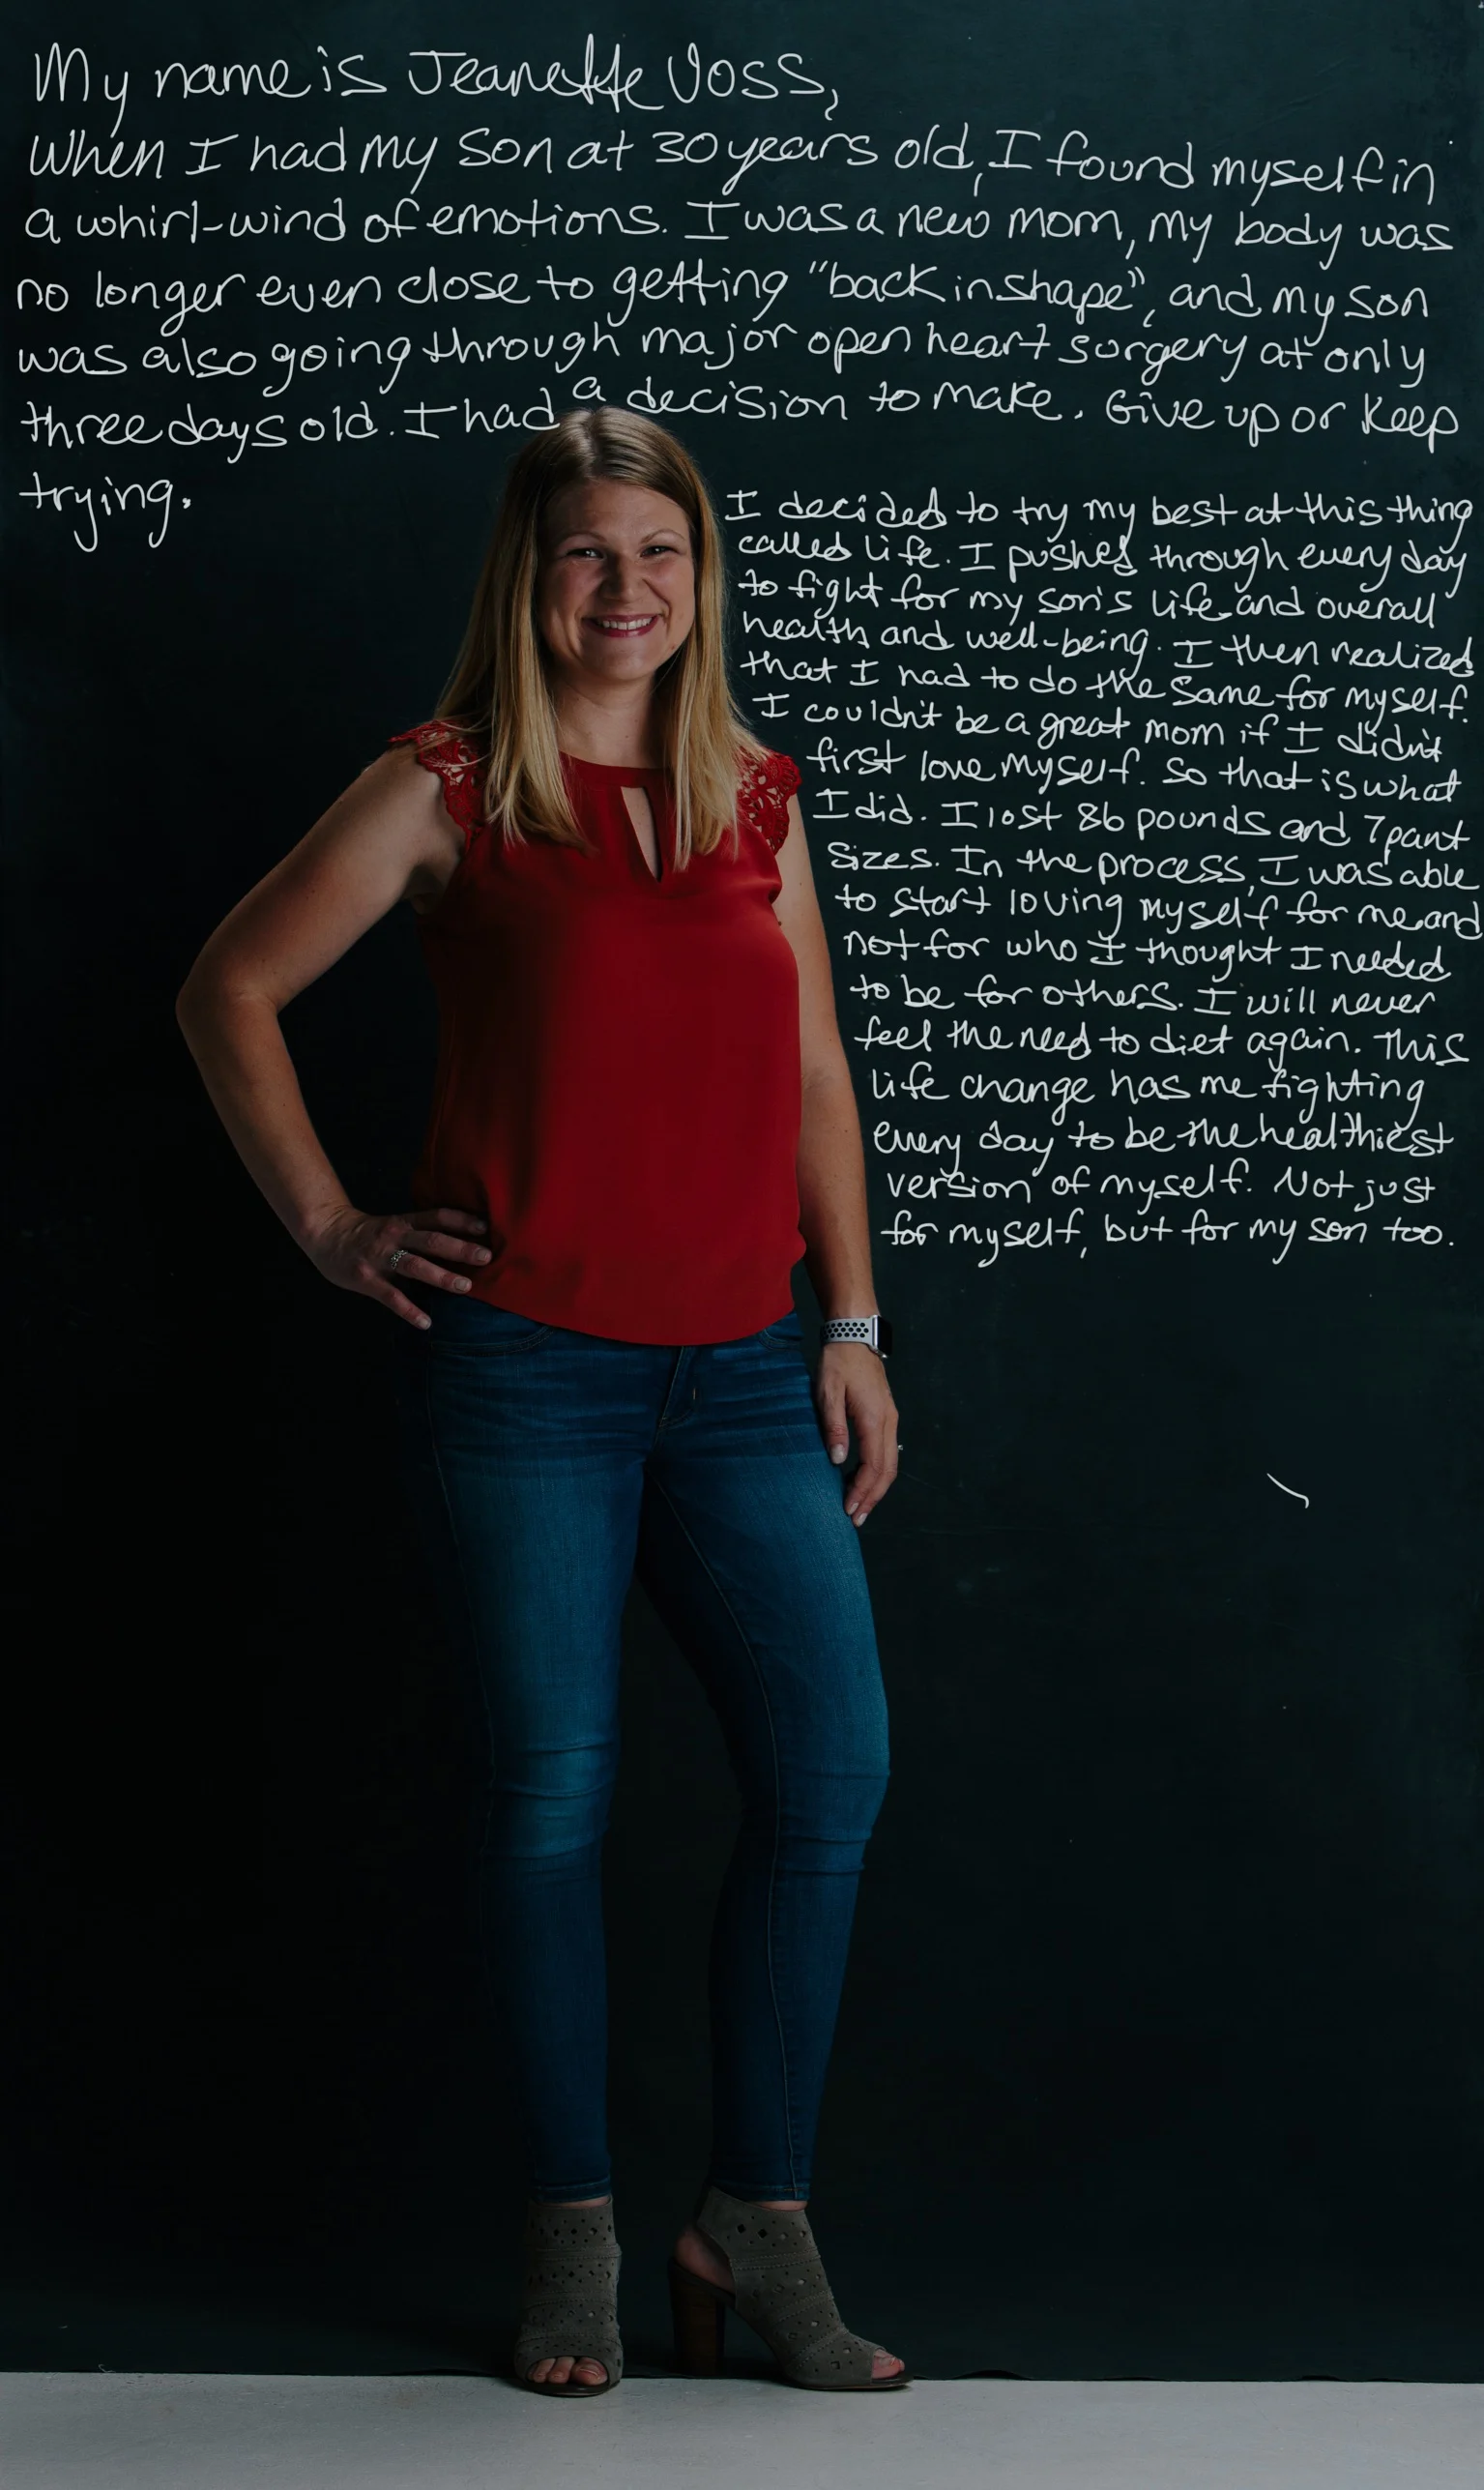 My name is Jeanette Voss,
When I had my son at 30 years old, I found myself in
a whirl-wind of emotions. I was a new mom, my body was
no longer even close to getting "back in shape", and my son
was also going through major open heart surgery at only
three days old. I had a decision to make. Give up or keep
trying.
I decided to try my best at this thing
called life. I pushed through every day
to fight for my son's life and overall
health and well-being. I then realized
that I had to do the same for myself.
I couldn't be a great mom if I didn't
first love myself. So that is what
I did. I lost 86 pounds and 7 pant
sizes. In the process, I was able
to start loving myself for me and
not for who I thought I needed
to be for others. I will never
feel the need to diet again. This
life change has me fighting
every day to be the healthiest
version of myself. Not just
for myself, but for my son too.